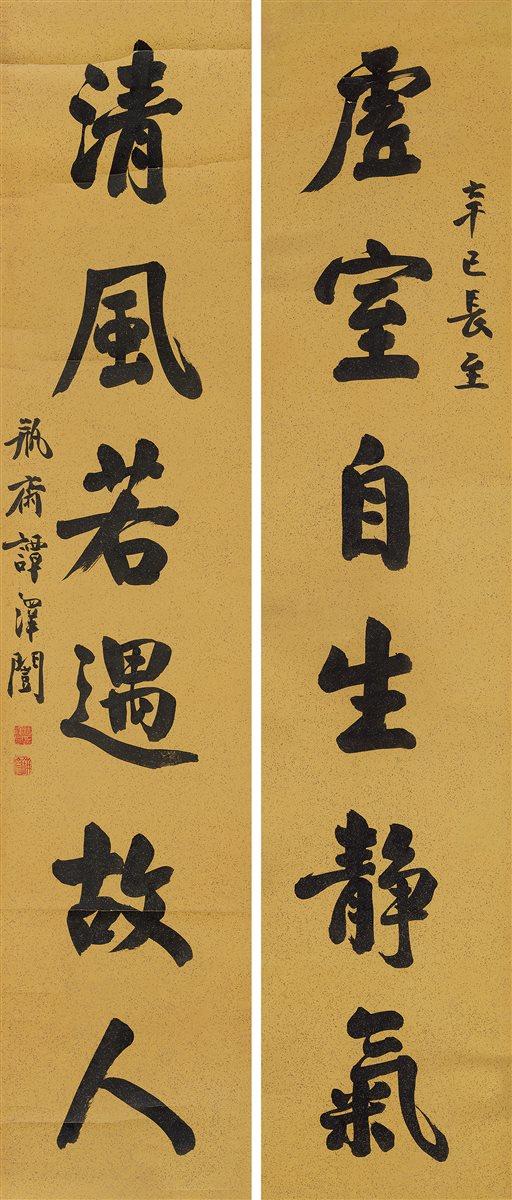 辛巳長至
虛室自生靜氣
清風若遇故人
瓶齋譚澤闓